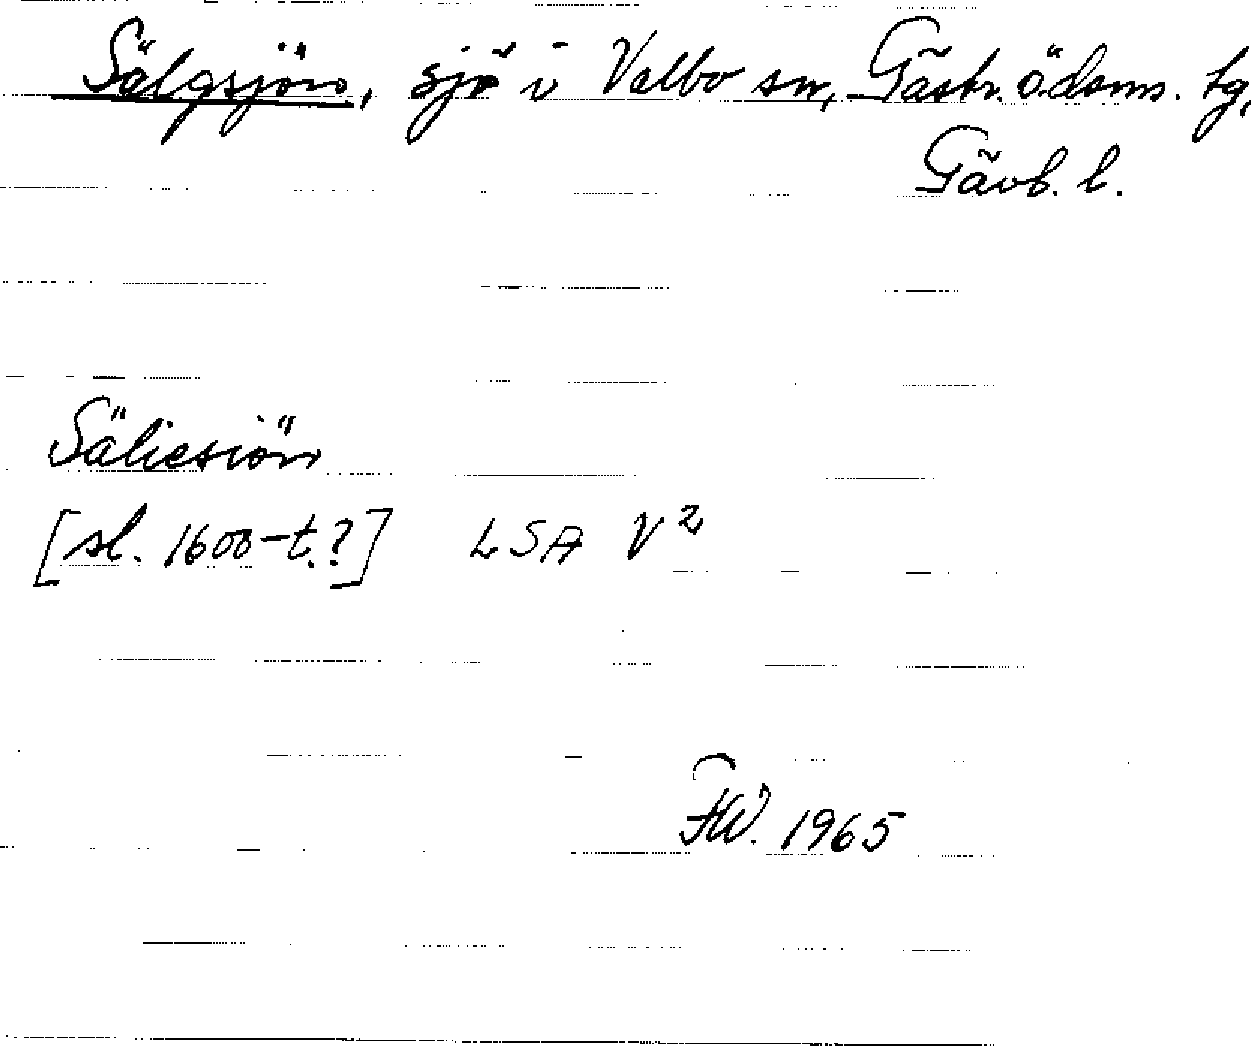 Sälgsjön, sjö i Valbo sn, Gästr. ö. doms. tg,
Gävb. l.
Säliesiön
[sl. 1600-t.?] LSA V²
FW. 1965